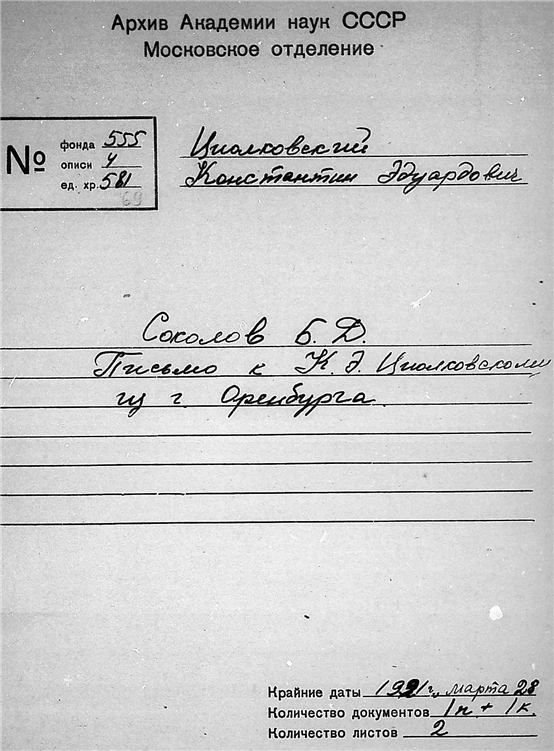 Архив Академии наук СССР
Московское отделение
№
фонда 555
описи 4
ед. хр. 581
69
Циолковский
Константин Эдуардович
Соколов Б. Д.
Письмо к К. Э. Циолковскому
из г. Оренбурга
Крайние даты 1921 г., марта 28
Количество документов 1п + 1к
Количество листов 2